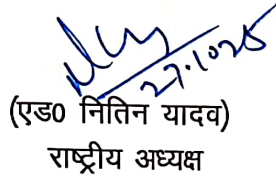 27.1025
(एड0 नितिन यादव)
राष्ट्रीय अध्यक्ष